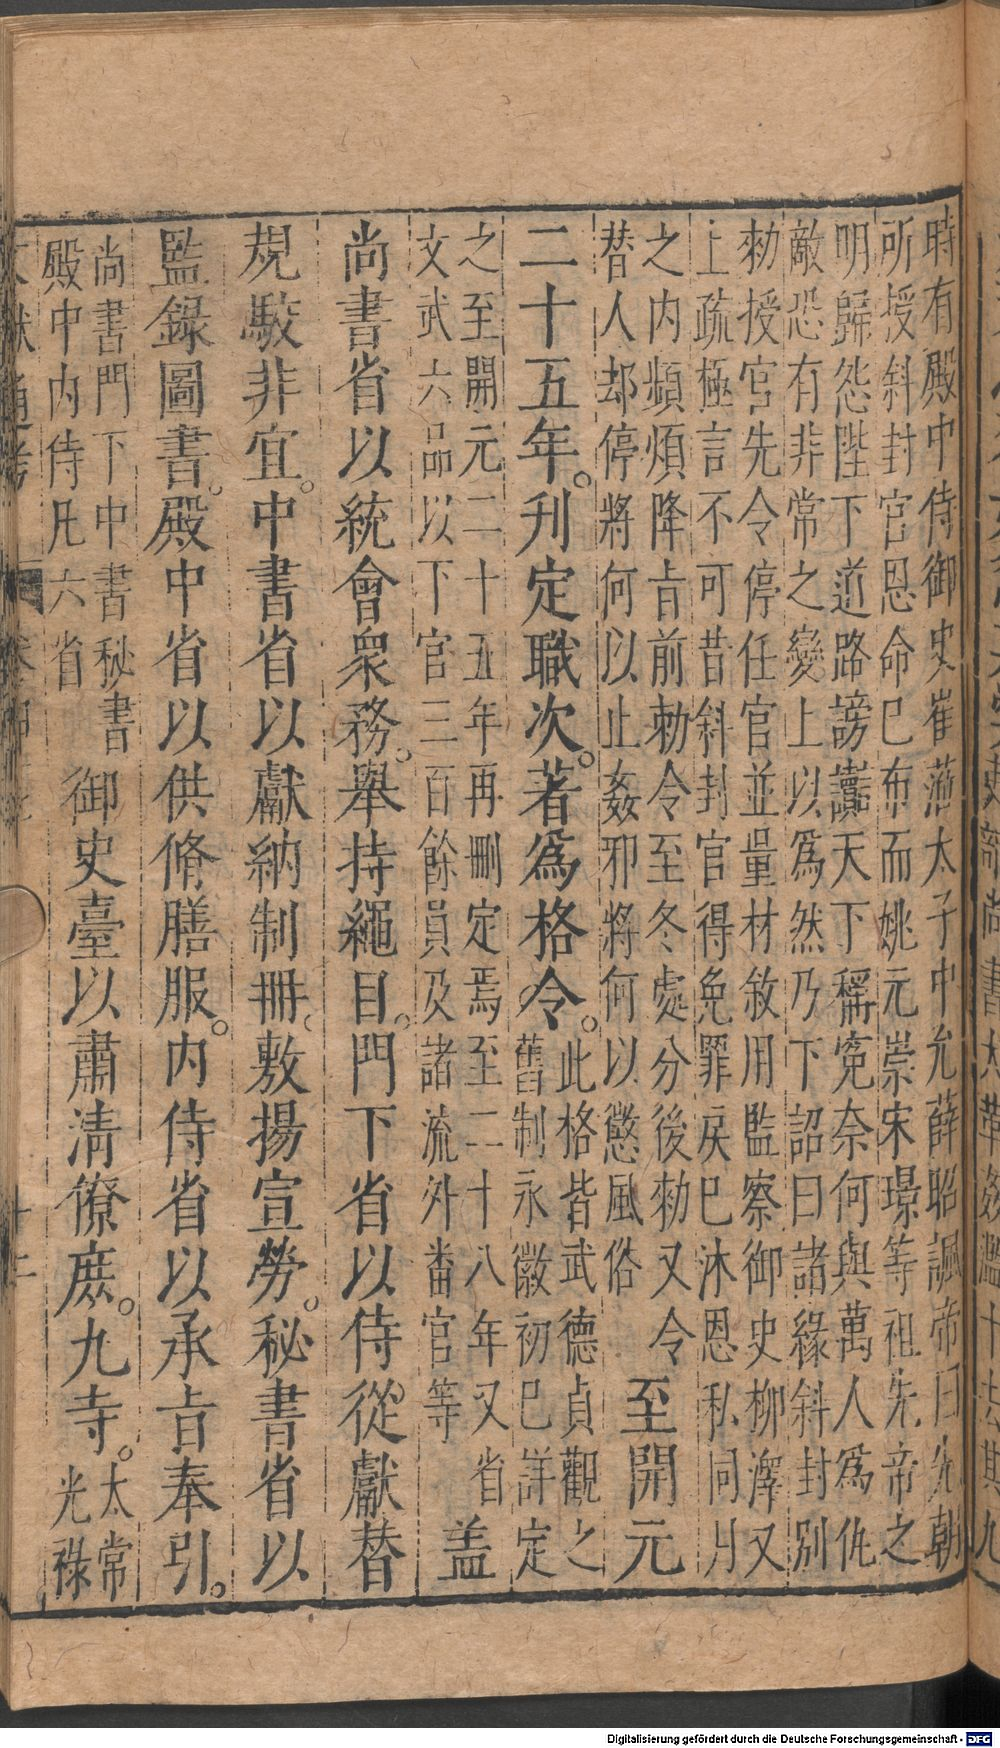 時有殿中侍御史崔蒞太子中允薛昭諷帝曰先朝
所授斜封官恩命巳布而姚元崇宋璟等祖先帝之
明歸怨陛下道路謗讟天下稱寃奈何與萬人爲仇
敵恐有非常之變上以爲然乃下詔曰諸緣斜封別
勑授官先令停任官並量材敘用監察御史柳澤又
上疏極言不可昔斜封官得免罪戾巳沐恩私同月
之内頻煩降㫖前勅令至冬處分後勑又令
替人却停將何以止姦邪將何以懲風俗
至開元
二十五年。刋定職次。著爲格令。
此格皆武德貞觀之
舊制永徽初巳詳定
之至開元二十五年再刪定焉至二十八年又省
文武六品以下官三百餘員及諸流外番官等
盖
尚書省以統會衆務。舉持繩目。門下省以侍從獻替
規駮非宜。中書省以獻納制册。敷揚宣勞。秘書省以
監錄圖書。殿中省以供脩膳服。内侍省以承㫖奉引。
尚書門下中書秘書
殿中内侍凡六省
御史臺以肅清僚庶。九寺。
太常
光祿
Digitalisierung gefördert durch die Deutsche Forschungsgemeinschaft - DFG